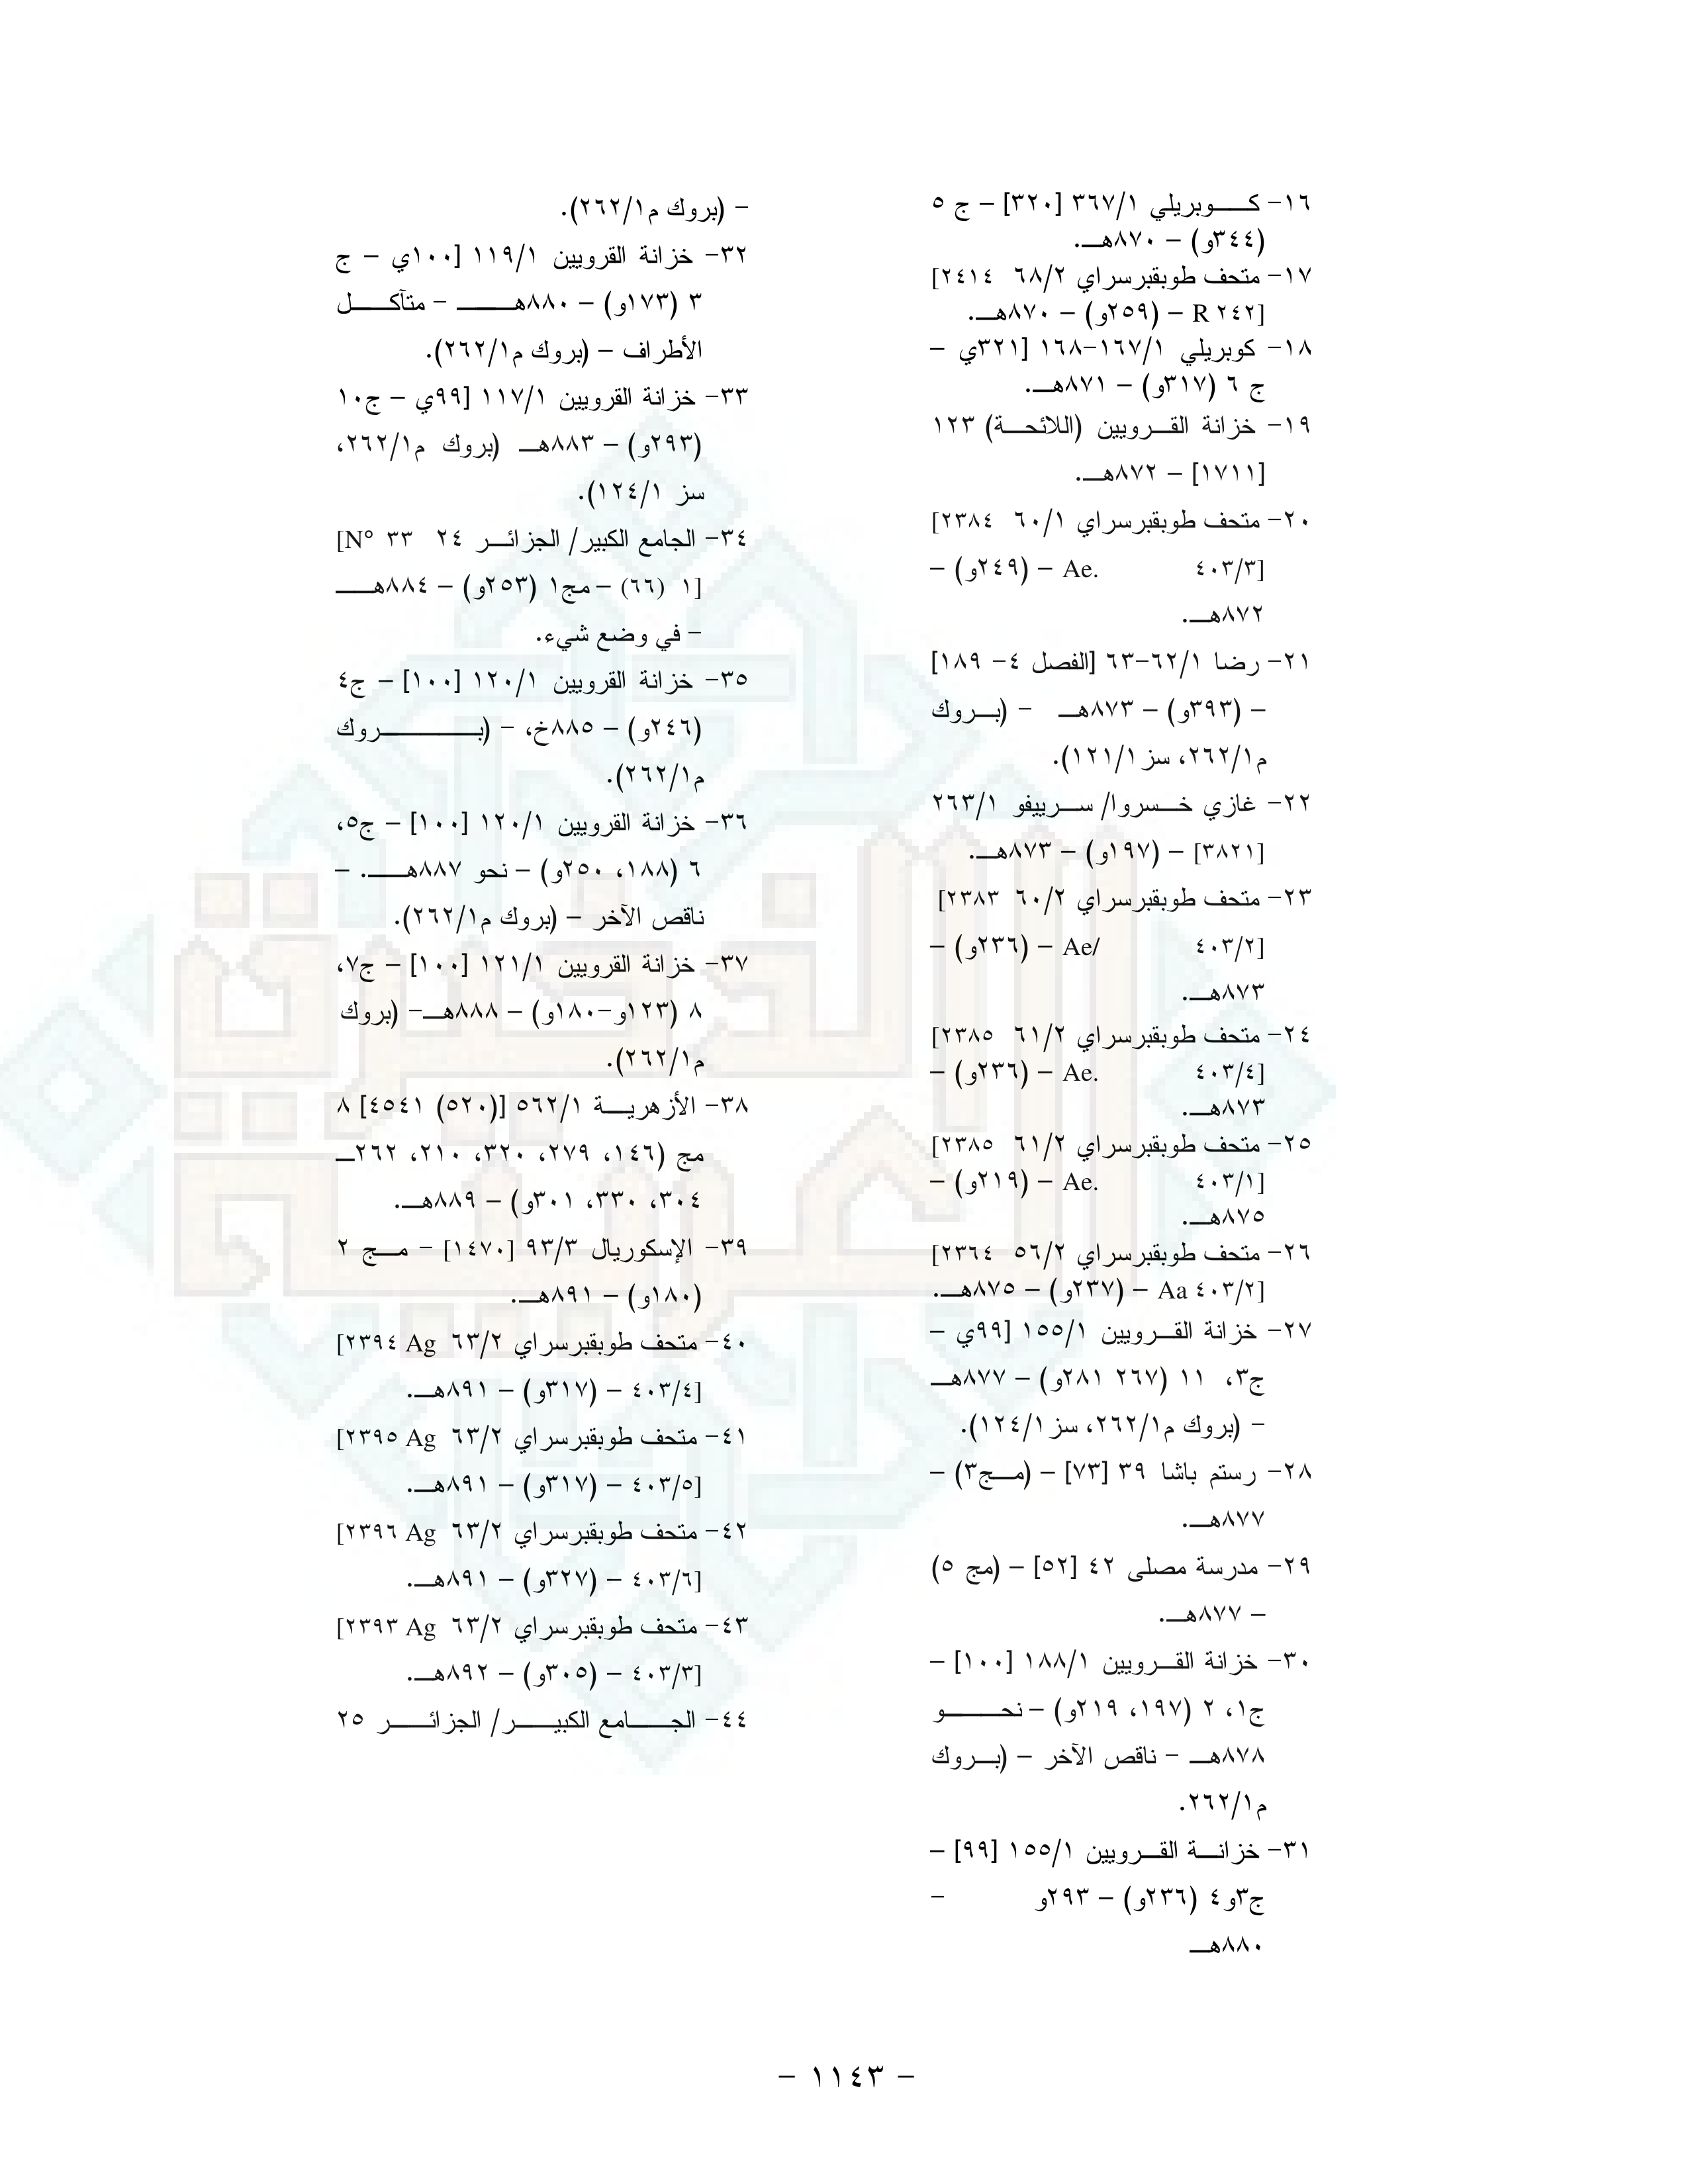 ١٦- كوبريلي ٣٦٧/١ [٣٢٠] – ج ٥
(٣٤٤و) – ٨٧٠هـ.
١٧- متحف طوبقبرسراي ٦٨/٢ ٢٤١٤]
[R ٢٤٢ – (٢٥٩و) – ٨٧٠هـ.
١٨- كوبريلي ١٦٧/١-١٦٨ [٣٢١ي –
ج ٦ (٣١٧و) – ٨٧١هـ.
١٩- خزانة القرويين (اللائحة) ١٢٣
[١٧١١] – ٨٧٢هـ.
٢٠- متحف طوبقبرسراي ٦٠/١ ٢٣٨٤]
[٤٠٣/٣ Ae. – (٢٤٩و) –
٨٧٢هـ.
٢١- رضا ٦٢/١-٦٣ [الفصل ٤- ١٨٩]
– (٣٩٣و) – ٨٧٣هـ - (بروك
م٢٦٢/١، سز ١٢١/١).
٢٢- غازي خسروا/ سرييفو ٢٦٣/١
[٣٨٢١] – (١٩٧و) – ٨٧٣هـ.
٢٣- متحف طوبقبرسراي ٦٠/٢ ٢٣٨٣]
[٤٠٣/٢ Ae/ – (٢٣٦و) –
٨٧٣هـ.
٢٤- متحف طوبقبرسراي ٦١/٢ ٢٣٨٥]
[٤٠٣/٤ Ae. – (٢٣٦و) –
٨٧٣هـ.
٢٥- متحف طوبقبرسراي ٦١/٢ ٢٣٨٥]
[٤٠٣/١ Ae. – (٢١٩و) –
٨٧٥هـ.
٢٦- متحف طوبقبرسراي ٥٦/٢ ٢٣٦٤]
[Aa ٤٠٣/٢ – (٢٣٧و) – ٨٧٥هـ.
٢٧- خزانة القرويين ١٥٥/١ [٩٩ي –
ج٣، ١١ (٢٦٧ ٢٨١و) – ٨٧٧هـ
– (بروك م٢٦٢/١، سز ١٢٤/١).
٢٨- رستم باشا ٣٩ [٧٣] – (مج٣) –
٨٧٧هـ.
٢٩- مدرسة مصلى ٤٢ [٥٢] – (مج ٥)
– ٨٧٧هـ.
٣٠- خزانة القرويين ١٨٨/١ [١٠٠] –
ج١، ٢ (١٩٧، ٢١٩و) – نحو
٨٧٨هـ - ناقص الآخر – (بروك
م٢٦٢/١.
٣١- خزانة القرويين ١٥٥/١ [٩٩] –
ج٣و٤ (٢٣٦و) – ٢٩٣و -
٨٨٠هـ
- (بروك م٢٦٢/١).
٣٢- خزانة القرويين ١١٩/١ [١٠٠ي – ج
٣ (١٧٣و) – ٨٨٠هـ - متآكل
الأطراف – (بروك م٢٦٢/١).
٣٣- خزانة القرويين ١١٧/١ [٩٩ي – ج١٠
(٢٩٣و) – ٨٨٣هـ (بروك م٢٦٢/١،
سز ١٢٤/١).
٣٤- الجامع الكبير/ الجزائر ٢٤ N° ٣٣]
[١ (٦٦) – مج١ (٢٥٣و) – ٨٨٤هـ
- في وضع شيء.
٣٥- خزانة القرويين ١٢٠/١ [١٠٠] – ج٤
(٢٤٦و) – ٨٨٥خ، - (بروك
م٢٦٢/١).
٣٦- خزانة القرويين ١٢٠/١ [١٠٠] – ج٥،
٦ (١٨٨، ٢٥٠و) – نحو ٨٨٧هـ. –
ناقص الآخر – (بروك م٢٦٢/١).
٣٧- خزانة القرويين ١٢١/١ [١٠٠] – ج٧،
٨ (١٢٣و-١٨٠و) – ٨٨٨هـ- (بروك
م٢٦٢/١).
٣٨- الأزهرية ٥٦٢/١ [(٥٢٠) ٤٥٤١] ٨
مج (١٤٦، ٢٧٩، ٣٢٠، ٢١٠، ٢٦٢ـ
٣٠٤، ٣٣٠، ٣٠١و) – ٨٨٩هـ.
٣٩- الإسكوريال ٩٣/٣ [١٤٧٠] – مج ٢
(١٨٠و) – ٨٩١هـ.
٤٠- متحف طوبقبرسراي ٦٣/٢ ٢٣٩٤ Ag]
[٤٠٣/٤ – (٣١٧و) – ٨٩١هـ.
٤١- متحف طوبقبرسراي ٦٣/٢ ٢٣٩٥ Ag]
[٤٠٣/٥ – (٣١٧و) – ٨٩١هـ.
٤٢- متحف طوبقبرسراي ٦٣/٢ ٢٣٩٦ Ag]
[٤٠٣/٦ – (٣٢٧و) – ٨٩١هـ.
٤٣- متحف طوبقبرسراي ٦٣/٢ ٢٣٩٣ Ag]
[٤٠٣/٣ – (٣٠٥و) – ٨٩٢هـ.
٤٤- الجامع الكبير/ الجزائر ٢٥
- ١١٤٣ -